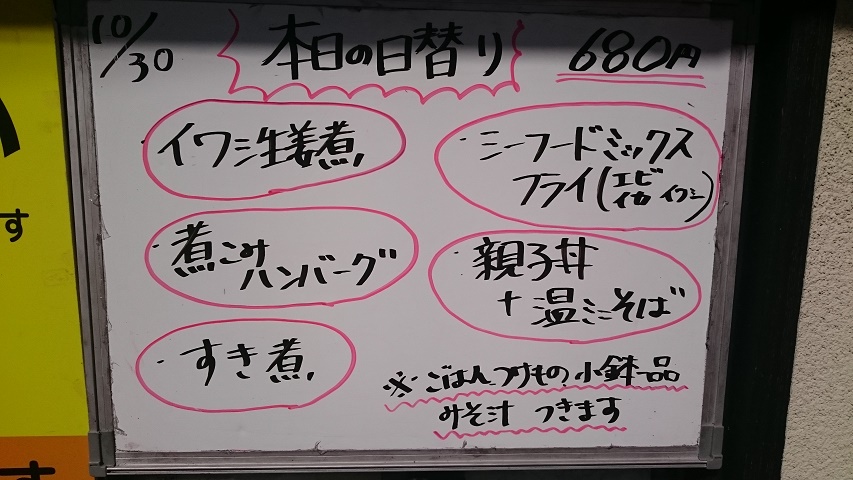 10/30
本日の日替り
680円
・イワシ生姜煮
・シーフードミックス
フライ(エビ イカ イワシ)
・煮こみ
ハンバーグ
・親子丼
+温ミニそば
・すき煮
※ごはん つけもの 小鉢一品
みそ汁 つきます
す
す